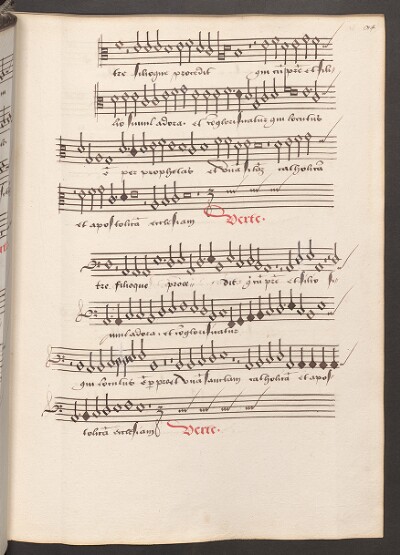 tre filioque procedit qui cū pr̄e et fili
lio simul adora. et cōglorificatur qui locutus
ē per prophetas et unā sctā catholicā
et apostolicā ecclesiam Verte.
tre filioque proce dit qui pr̄e et filio si
mul adora. et cōglorificatur
qui locutus ē p̄ proph et unā sanctam catholicā et apos
tolicā ecclesiam Verte.